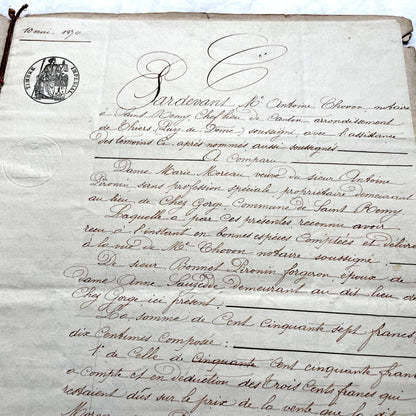 10 mai 1870
TIMBRE IMPÉRIAL
Pardevant Me Antoine Chovon notaire
à Saint Remy, Chef lieu de Canton arrondissement
de Thiers Puy de Dôme) soussigné, avec l'assistance
des témoins ci après nommés aussi soussignés
A Comparu
Dame Marie Moreau veuve du sieur Antoine
Pironin sans profession spéciale propriétaire demeurant
au lieu de Chez Gorge Commune de Saint Remy
Laquelle a par ces présentes reconnu avoir
reçu à l'instant en bonnes espèces Comptées et délivrées
à la vue de Me Chovon notaire soussigné
De sieur Bonnet Pironin forgeron époux de
Dame Anne Demeurant au dit lieu de
Chez Gorge ici présent
La somme de Cent Cinquante sept francs
dix Centimes Composée:
1° de Celle de Cinquante Cent cinquante francs
a Compte et en déduction des Trois Cents francs qui
restaient dûs sur le prix de la vente que la dite